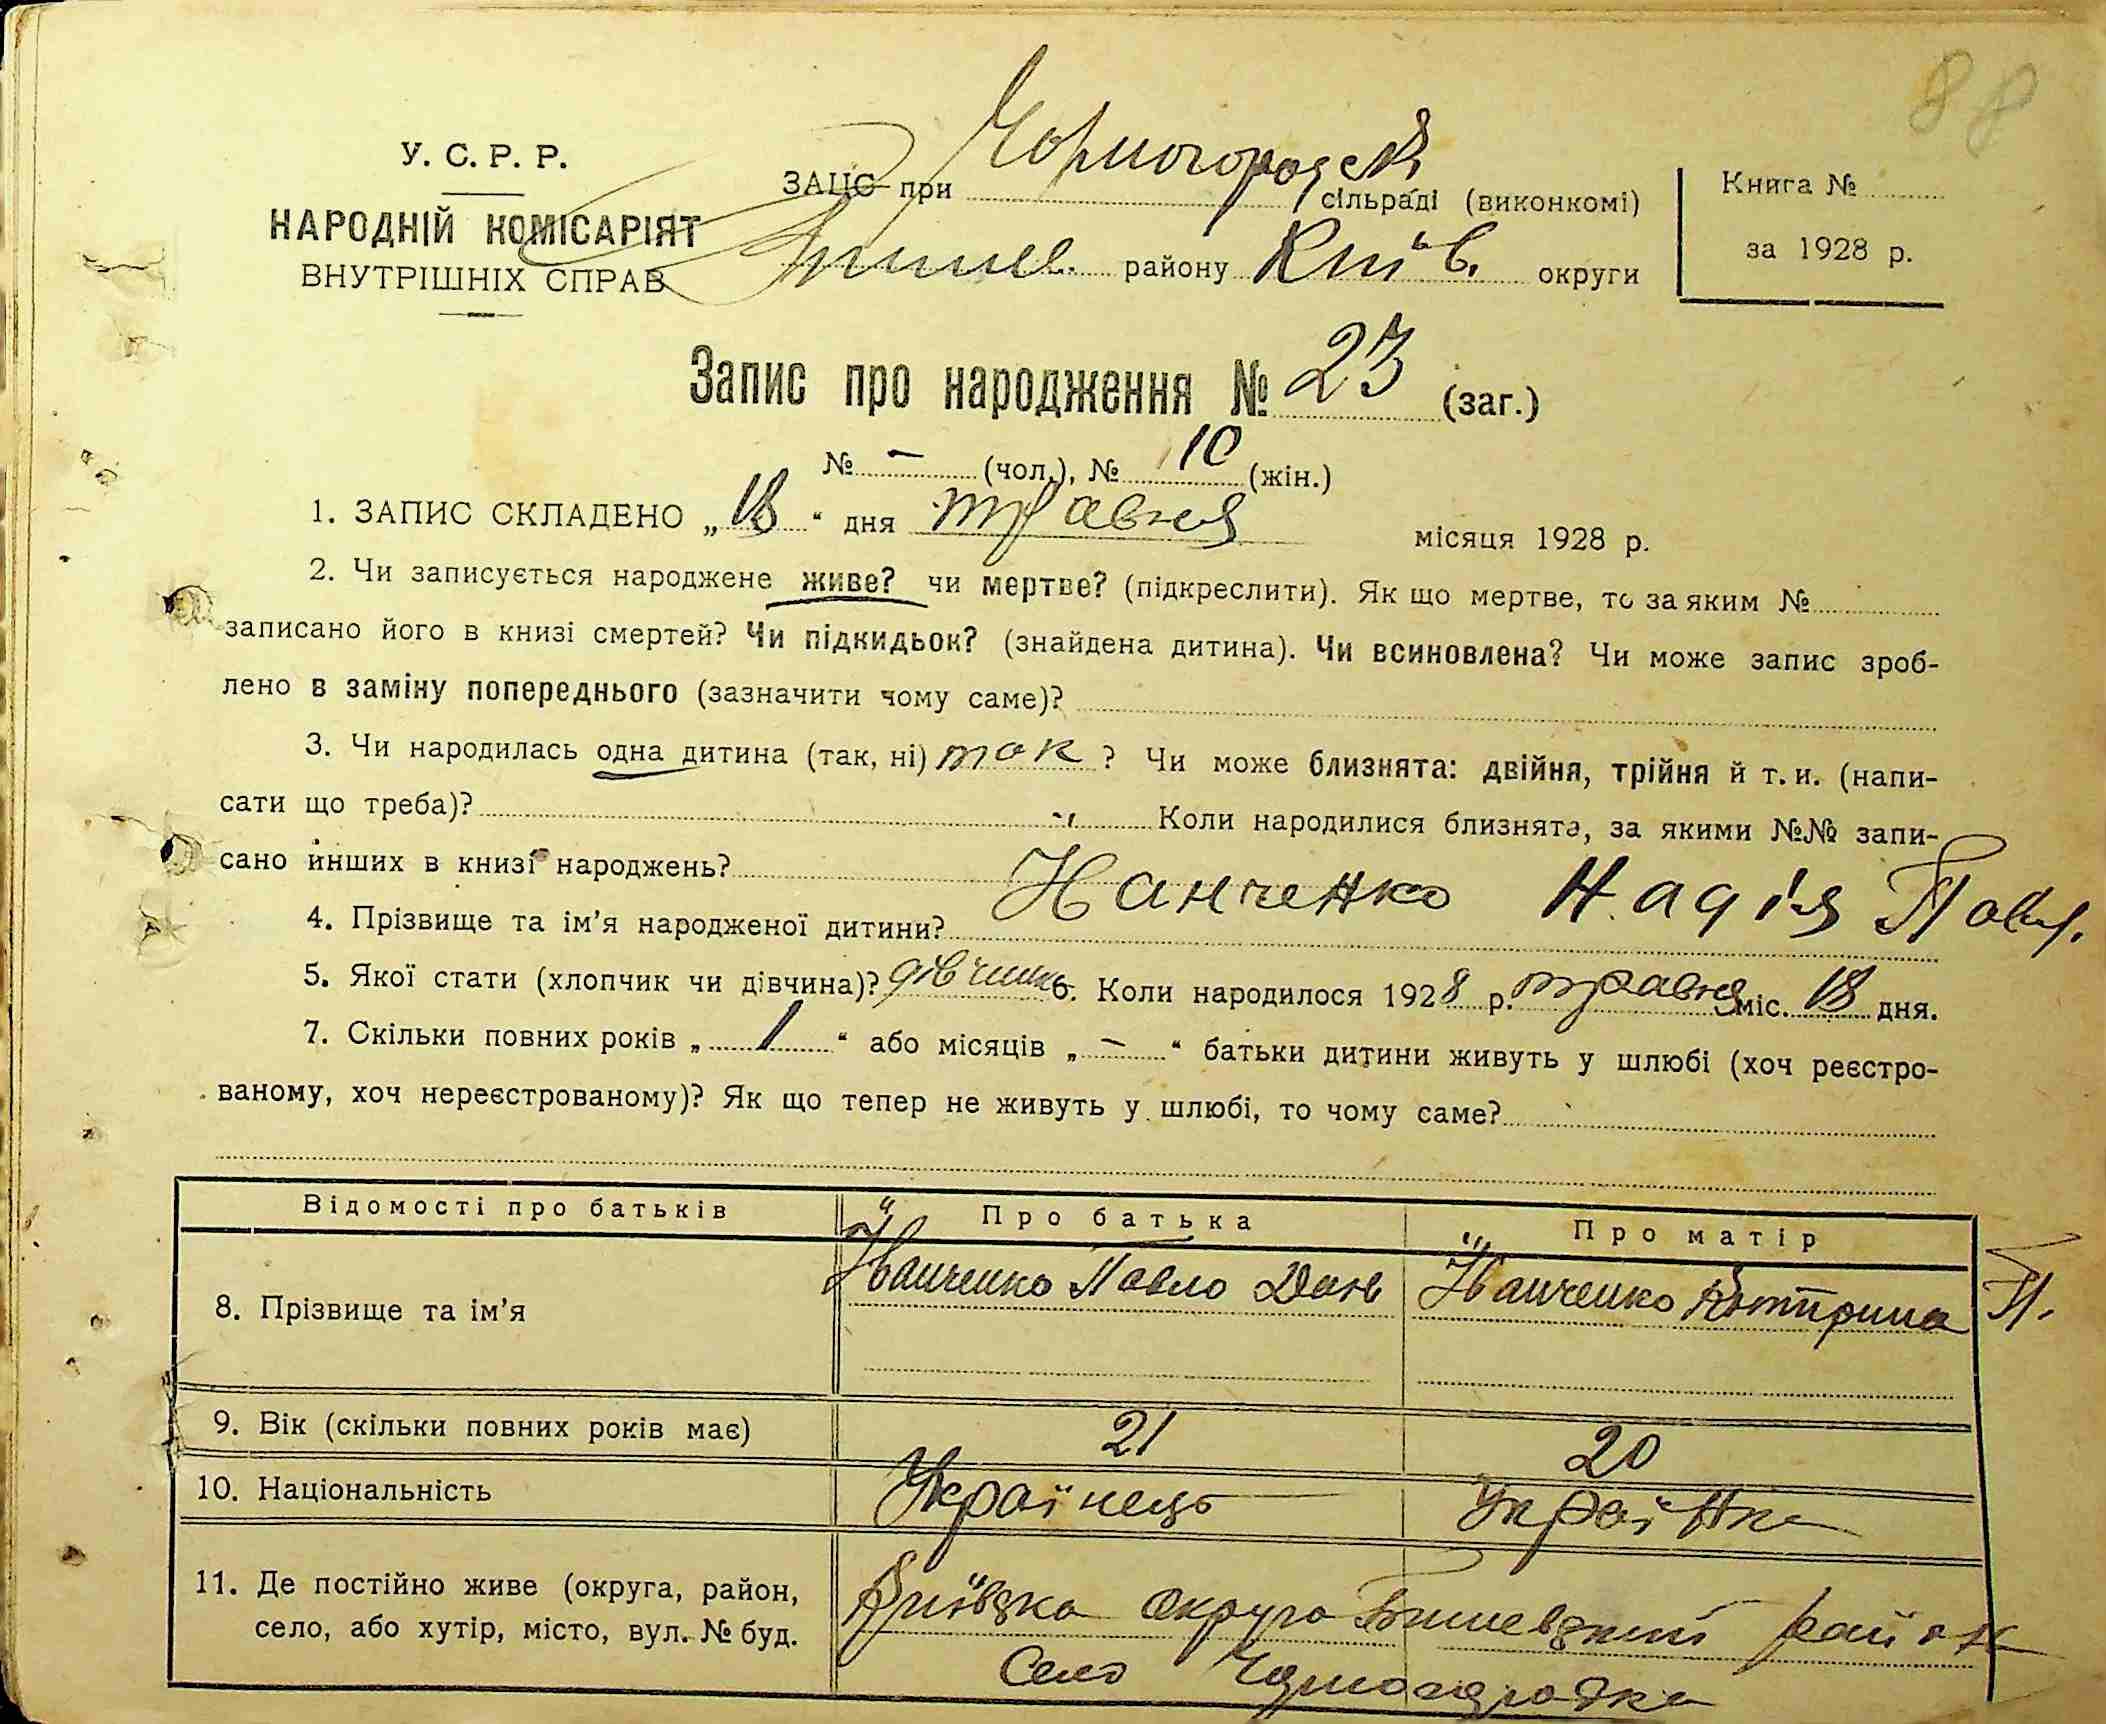 88
У. С. Р. Р.
НАРОДНІЙ КОМІСАРІЯТ
ВНУТРІШНІХ СПРАВ
ЗАЦС при Чорногородск сільраді (виконкомі)
Бишев. району Київ. округи
Книга №
за 1928 р.
Запис про народження № 23 (заг.)
№ — (чол.), № 10 (жін.)
1. ЗАПИС СКЛАДЕНО „18“ дня травня місяця 1928 р.
2. Чи записується народжене живе? чи мертве? (підкреслити). Як що мертве, то за яким №
записано його в книзі смертей? Чи підкидьок? (знайдена дитина). Чи всиновлена? Чи може запис зроб-
лено в заміну попереднього (зазначити чому саме)?
3. Чи народилась одна дитина (так, ні) так ? Чи може близнята: двійня, трійня й т. и. (напи-
сати що треба)? Коли народилися близнята, за якими №№ запи-
сано инших в книзі народжень?
4. Прізвище та ім’я народженої дитини? Надія Павл.
5. Якої стати (хлопчик чи дівчина)? дівчинка 6. Коли народилося 1928 р. травня міс. 18 дня.
7. Скільки повних років „1“ або місяців „—“ батьки дитини живуть у шлюбі (хоч реєстро-
ваному, хоч нереєстрованому)? Як що тепер не живуть у шлюбі, то чому саме?
Відомості про батьків Про батька Про матір
8. Прізвище та ім’я Іванченко Павло Дан Іванченко П.
9. Вік (скільки повних років має) 21 20
10. Національність Українець Українка
11. Де постійно живе (округа, район, Київська округа Бишевський район
село, або хутір, місто, вул. № буд. Село Чорногородка